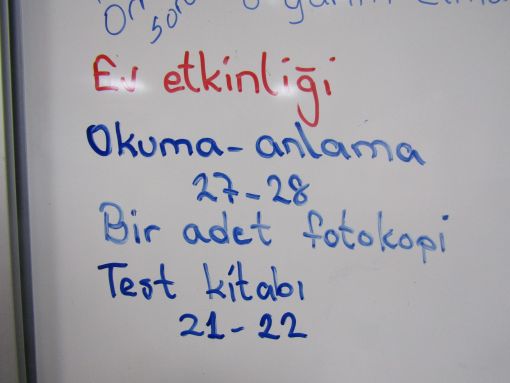 Ev etkinliği
Okuma-anlama
27-28
Bir adet fotokopi
Test kitabı
21-22